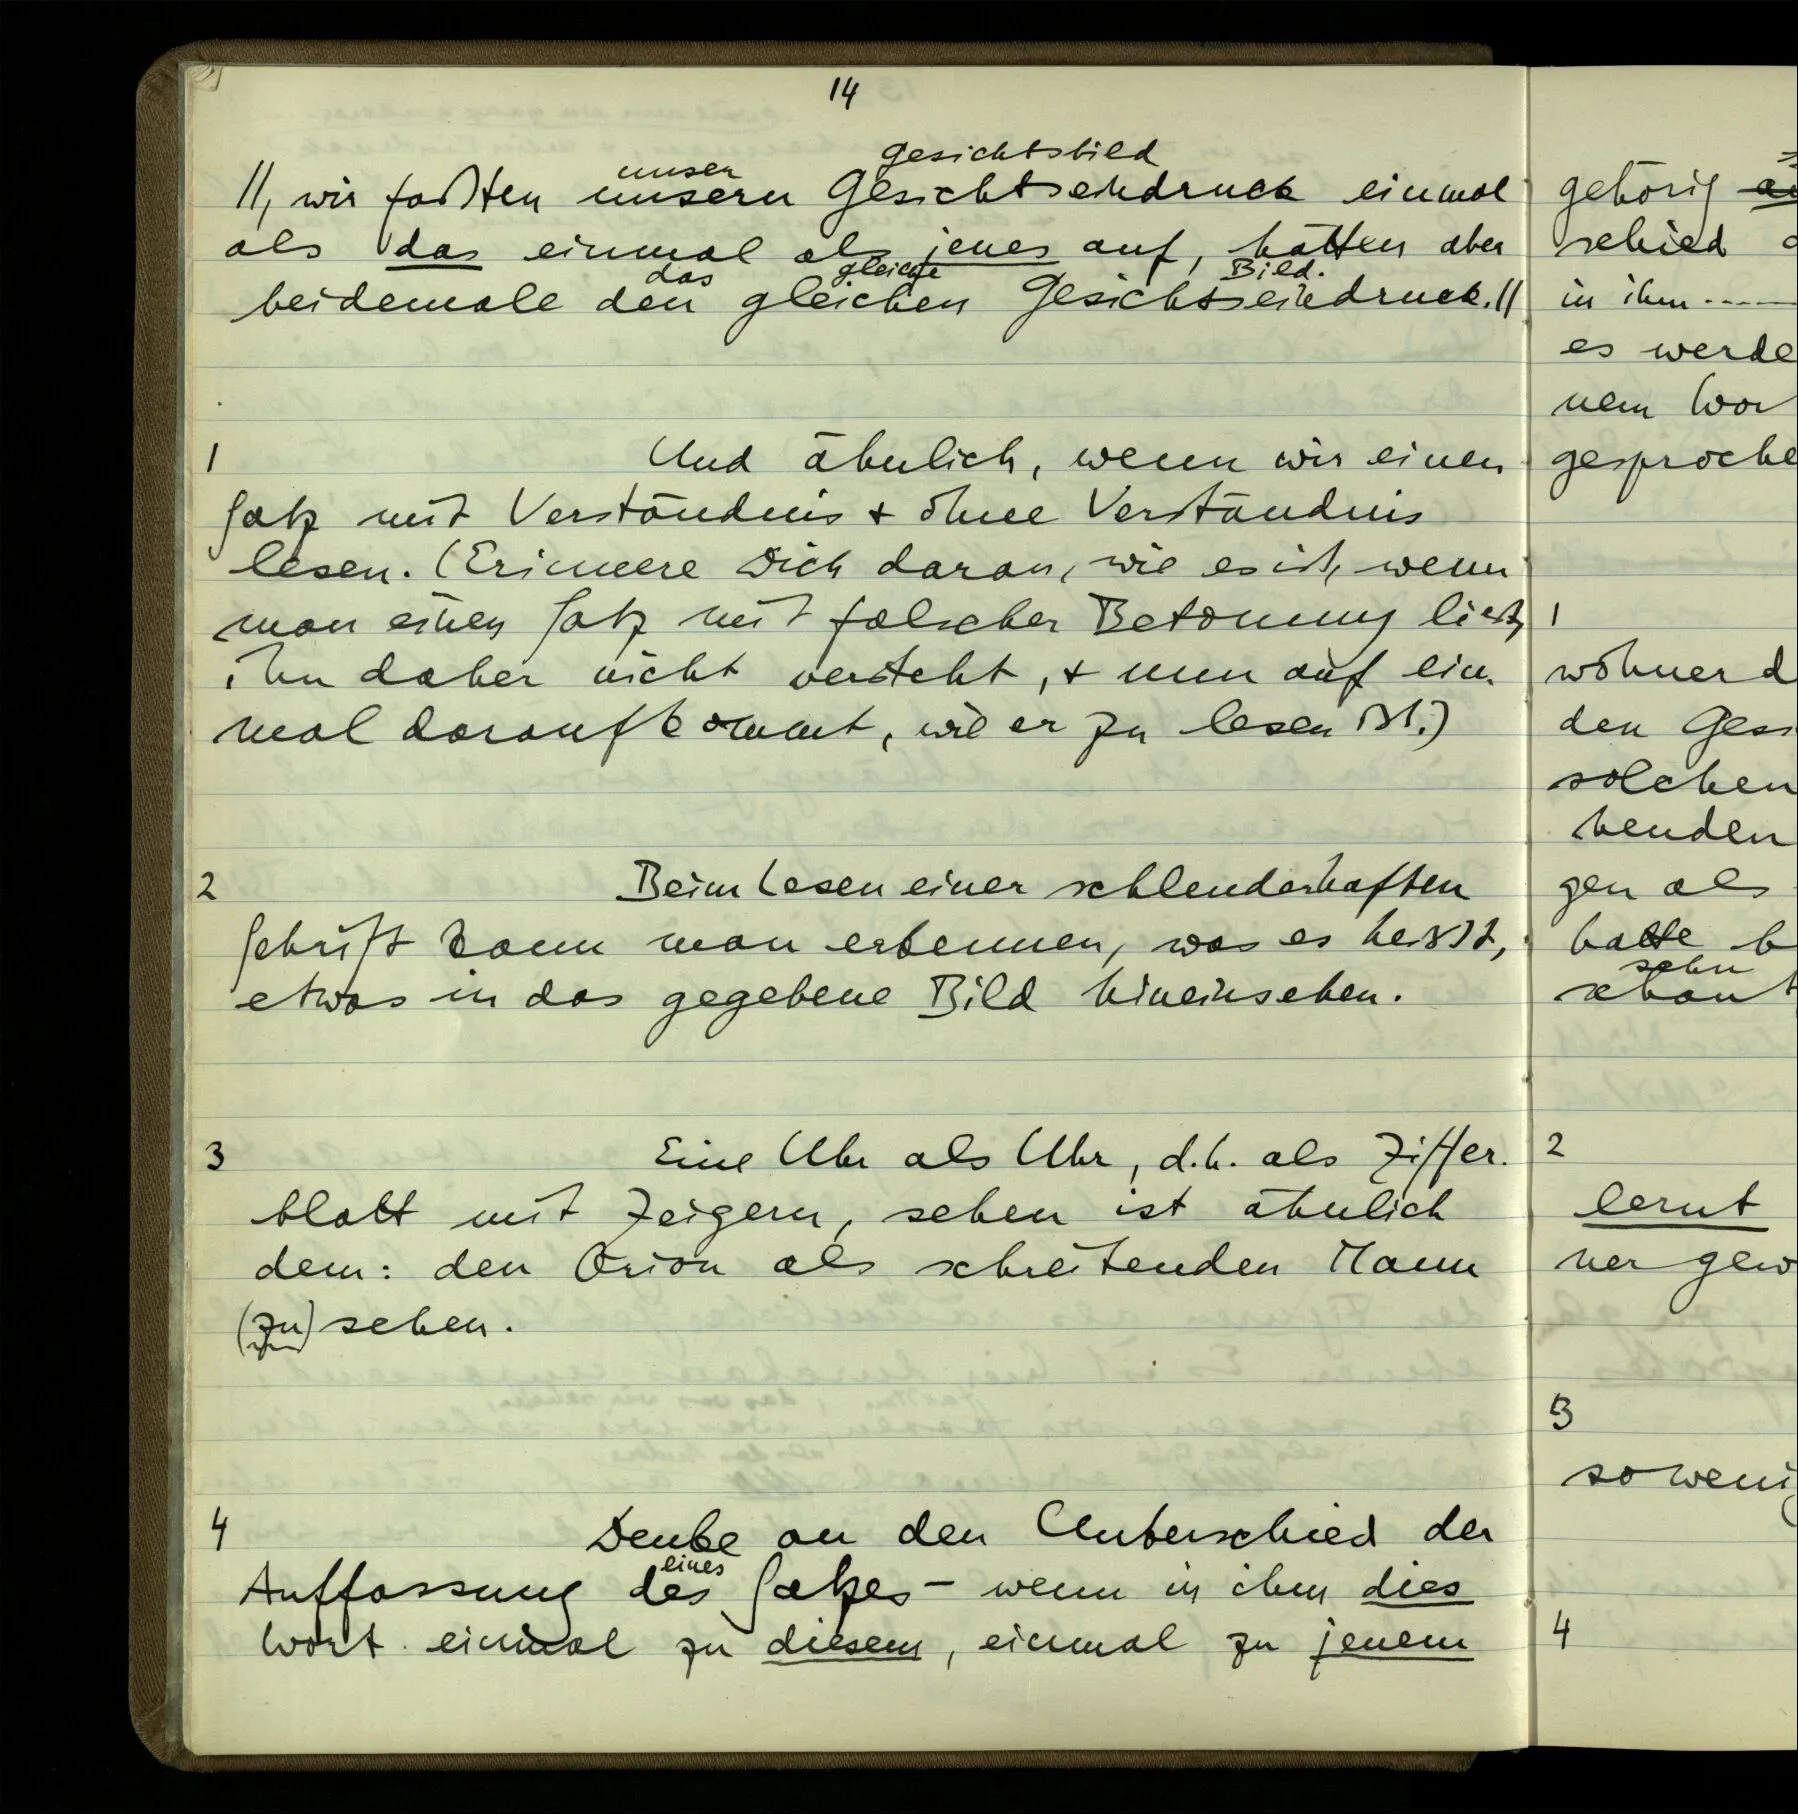 14
Gesichtsbild
unser
//, wir faßten unsern Gesichtseindruck einmal
als das einmal als jenes auf, hätten aber
das gleiche Bild.
beidemale den gleichen Gesichtseindruck.//
1 Und ähnlich, wenn wir einen
Satz mit Verständnis + ohne Verständnis
lesen. (Erinnere Dich daran, wie es ist, wenn
man einen Satz mit falscher Betonung liest,
ihn daher nicht versteht, + nun auf ein-
mal daraufkommt, wie er zu lesen ist.)
2 Beim Lesen einer schleuderhaften
Schrift kann man erkennen, was es heißt,
etwas in das gegebene Bild hineinsehen.
3 Eine Uhr als Uhr, d.h. als Ziffer-
blatt mit Zeigern, sehen ist ähnlich
dem: den Orion als schreitenden Mann
(zu) sehen.
4 Denke an den Unterschied der
eines
Auffassung des Satzes – wenn in ihm dies
Wort einmal zu diesem, einmal zu jenem
gehörig
schied
in ihm ----
es werde
nem Wor
gesproche
1
wohner d
den Ges
solchen
henden
gen als
hatte b
sehn
schaut
2
lernt
ner gew
3
so weni
4